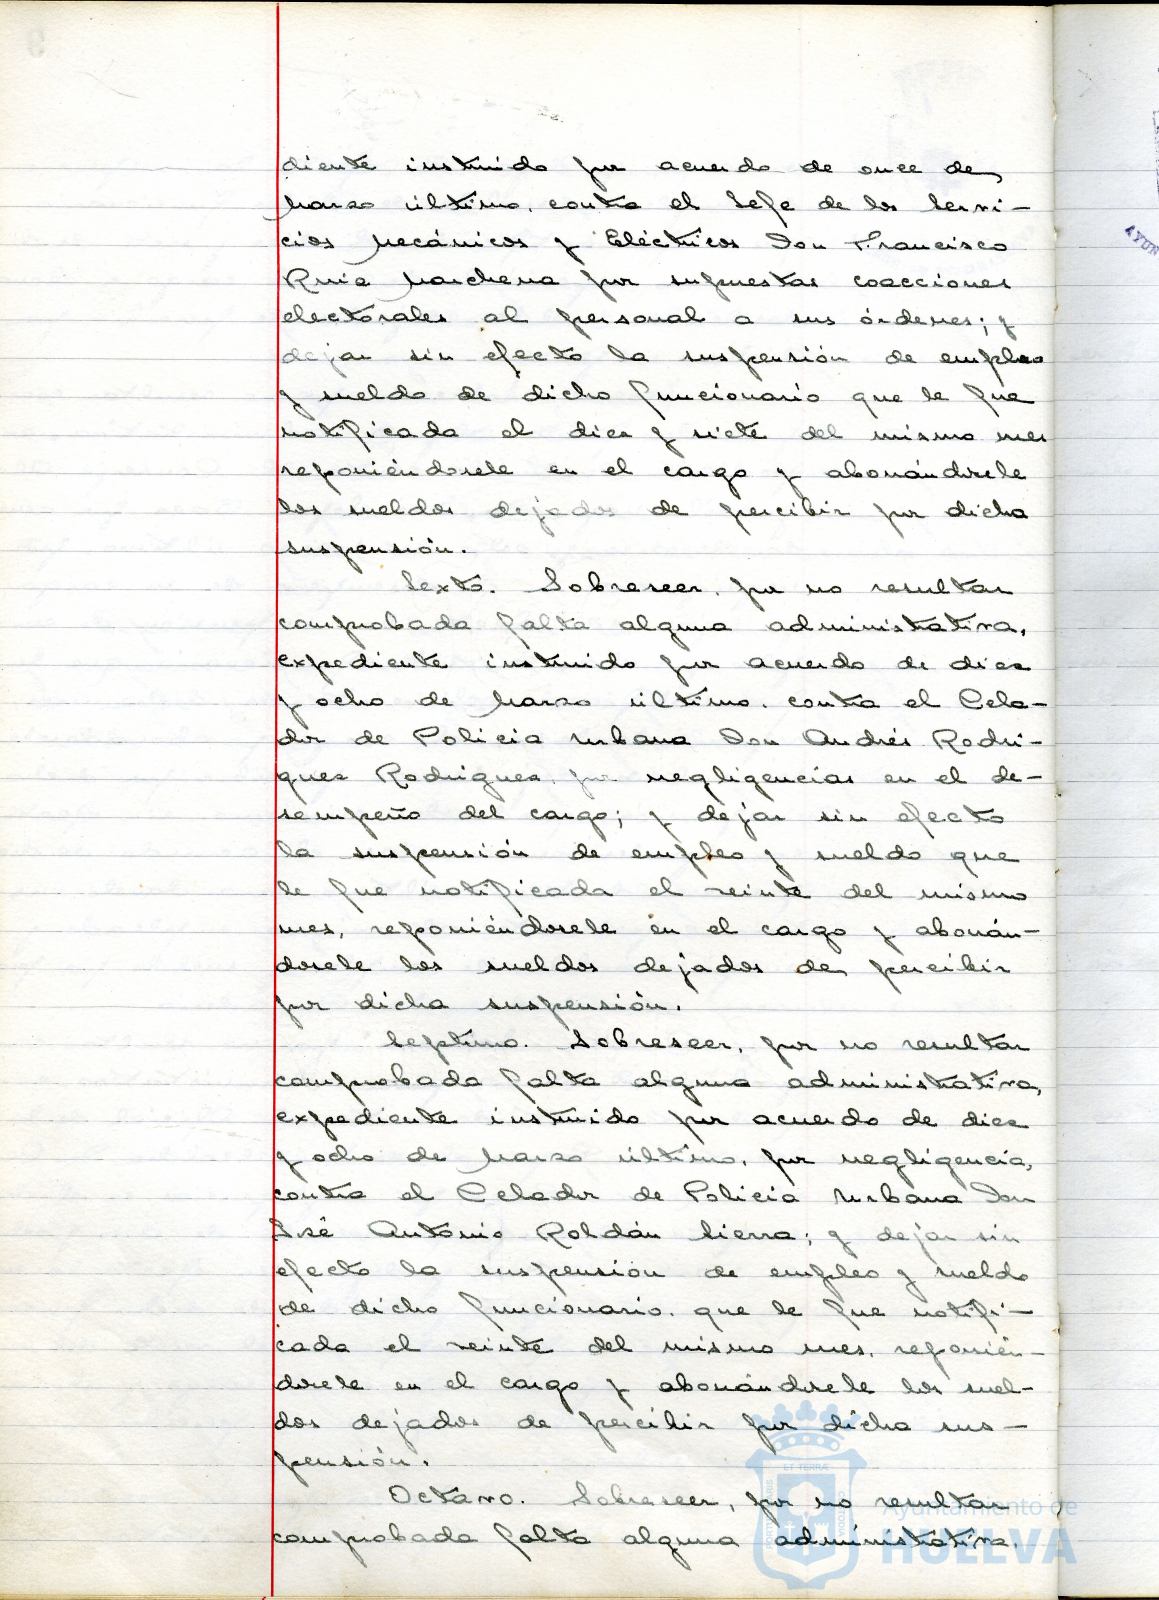 diente instruido por acuerdo de once de
Marzo último, contra el Jefe de los Servi-
cios Mecánicos y Eléctricos Don Francisco
Ruiz Marchena por supuestas coacciones
electorales al personal a sus órdenes; y
dejar sin efecto la suspensión de empleo
y sueldo de dicho funcionario que le fue
notificada el diez y siete del mismo mes
reponiéndosele en el cargo y abonándosele
los sueldos dejados de percibir por dicha
suspensión.
Sexto. Sobreseer, por no resultar
comprobada falta alguna administrativa,
expediente instruido por acuerdo de diez
y ocho de Marzo último, contra el Cela-
dor de Policia urbana Don Andrés Rodri-
guez Rodriguez, por negligencias en el de-
sempeño del cargo; y dejar sin efecto
la suspensión de empleo y sueldo que
le fue notificada el veinte del mismo
mes, reponiéndosele en el cargo y abonán-
dosele los sueldos dejados de percibir
por dicha suspensión.
Septimo. Sobreseer, por no resultar
comprobada falta alguna administrativa,
expediente instruido por acuerdo de diez
y ocho de Marzo último, por negligencia,
contra el Celador de Policia urbana Don
José Antonio Roldán Sierra; y dejar sin
efecto la suspensión de empleo y sueldo
de dicho funcionario, que le fue notifi-
cada el veinte del mismo mes, reponién-
dosele en el cargo y abonándosele los suel-
dos dejados de percibir por dicha sus-
pensión.
Octavo. Sobreseer, por no resultar
comprobada falta alguna administrativa,
Ayuntamiento de
HUELVA